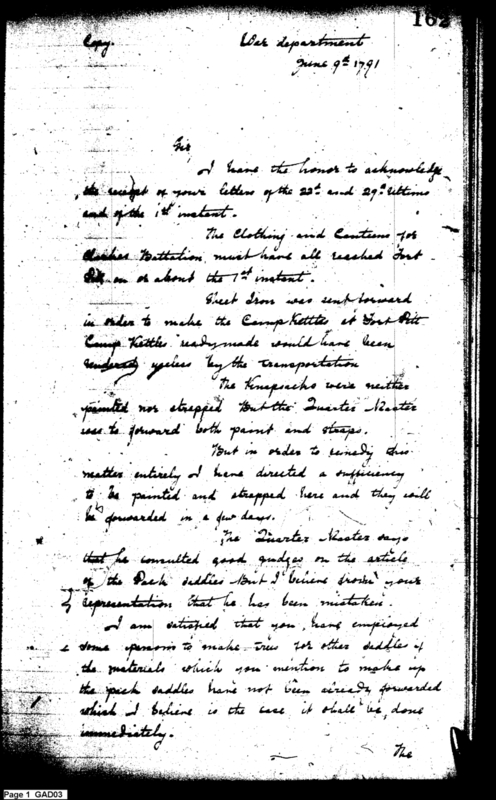 162
Copy. War department
June 9th 1791
Sir
I have the honor to acknowledge
the receipt of your letters of the 22d and 29th Ultimo
and of the 1st instant.
The Clothing and Canteens for
Clarkes Battalion must have all reached Fort
Pitt on or about the 1st instant.
Sheet Iron was sent forward
in order to make the Camp Kettles at Fort Pitt
Camp Kettles readymade would have been
rendered useless by the transportation
The Knapsacks were neither
painted nor strapped But the Quarter Master
was to forward both paint and straps.
But in order to remedy this
matter entirely I have directed a sufficiency
to be painted and strapped here and they will
be forwarded in a few days.
The Quarter Master says
that he consulted good judges on the article
of the Pack saddles But I believe from your
representation that he has been mistaken.
I am satisfied that you have employed
some persons to make trees for other saddles if
the materials which you mention to make up
the pack saddles have not been already forwarded
which I believe is the case it shall be done
immediately.
The
Page 1 GAD03